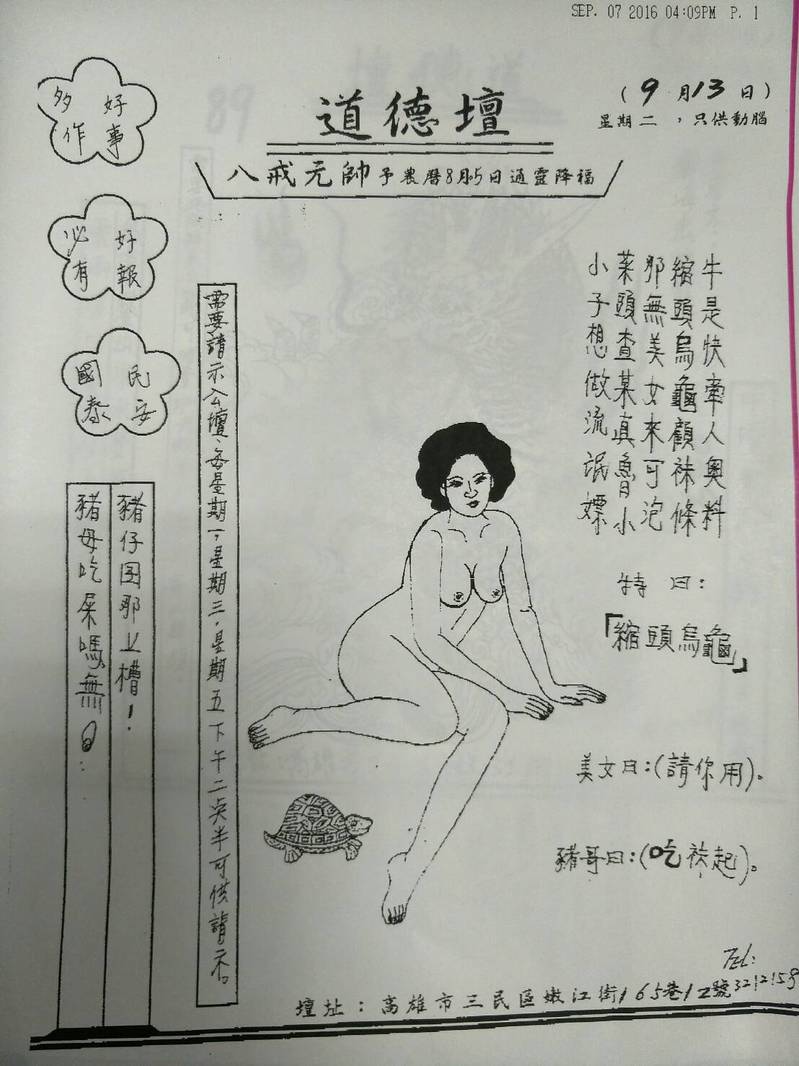 SEP. 07 2016 04:09PM P. 1
道德壇
(9月13日)
星期二，只供動腦
八戒元帥予農曆8月5日通靈降福
好事
多作
好報
必有
民安
國泰
牛是快牽人奧料
縮頭烏龜顧祙條
那無美女來可泡
菜頭查某真魯小
小子想做流氓嫖
特曰：
「縮頭烏龜」
美女曰：(請你用)。
豬哥曰：(吃祙起)。
需要請示公壇、每星期一，星期三，星期五下午二点半可供請示。
豬仔囝那上槽！
豬母吃屎嗎無
TEL：
3212159
壇址：高雄市三民區嫩江街165巷12號